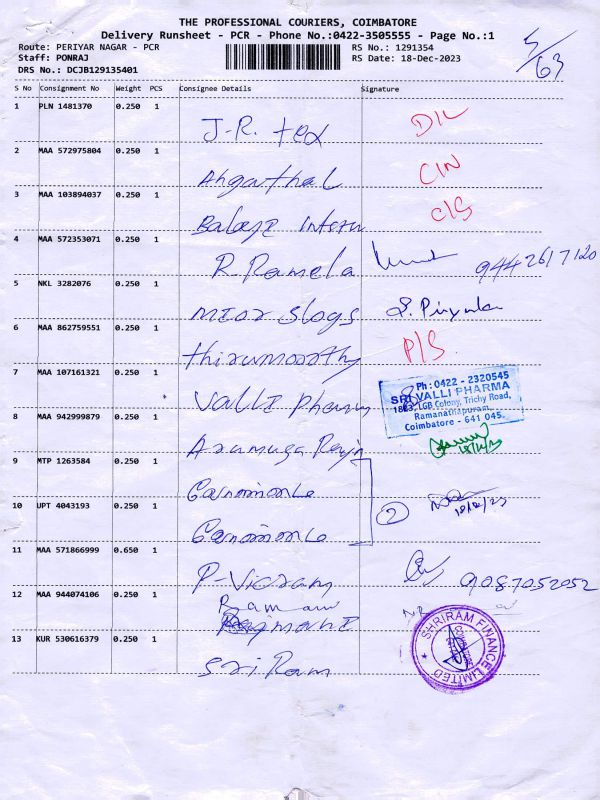 THE PROFESSIONAL COURIERS, COIMBATORE
Delivery Runsheet - PCR - Phone No.:0422-3505555 - Page No.:1
Route: PERIYAR NAGAR - PCR RS No.: 1291354
Staff: PONRAJ RS Date: 18-Dec-2023
DRS No.: DCJB129135401
5/63
S No Consignment No Weight PCS Consignee Details Signature
1 PLN 1481370 0.250 1 J-R. Tex D/L
2 MAA 572975804 0.250 1 Angathal C/N
3 MAA 103894037 0.250 1 Balaje C/S
4 MAA 572353071 0.250 1 R Ramela 9442617120
5 NKL 3282076 0.250 1 S. Priyanka
6 MAA 862759551 0.250 1 Thirumoorthy P/S
7 MAA 107161321 0.250 1 Valle Pharm
Ph : 0422 - 2320545
SRI VALLI PHARMA
LGB Colony, Trichy Road,
Ramanathapuram,
Coimbatore - 641 045.
8 MAA 942999879 0.250 1 Arumuga 18/12/23
9 MTP 1263584 0.250 1
10 UPT 4043193 0.250 1 2 18/12/23
11 MAA 571866999 0.650 1 P-Vicram 9087052052
12 MAA 944074106 0.250 1 Raman
13 KUR 530616379 0.250 1 Sri Ram
SHRIRAM FINANCE LIMITED